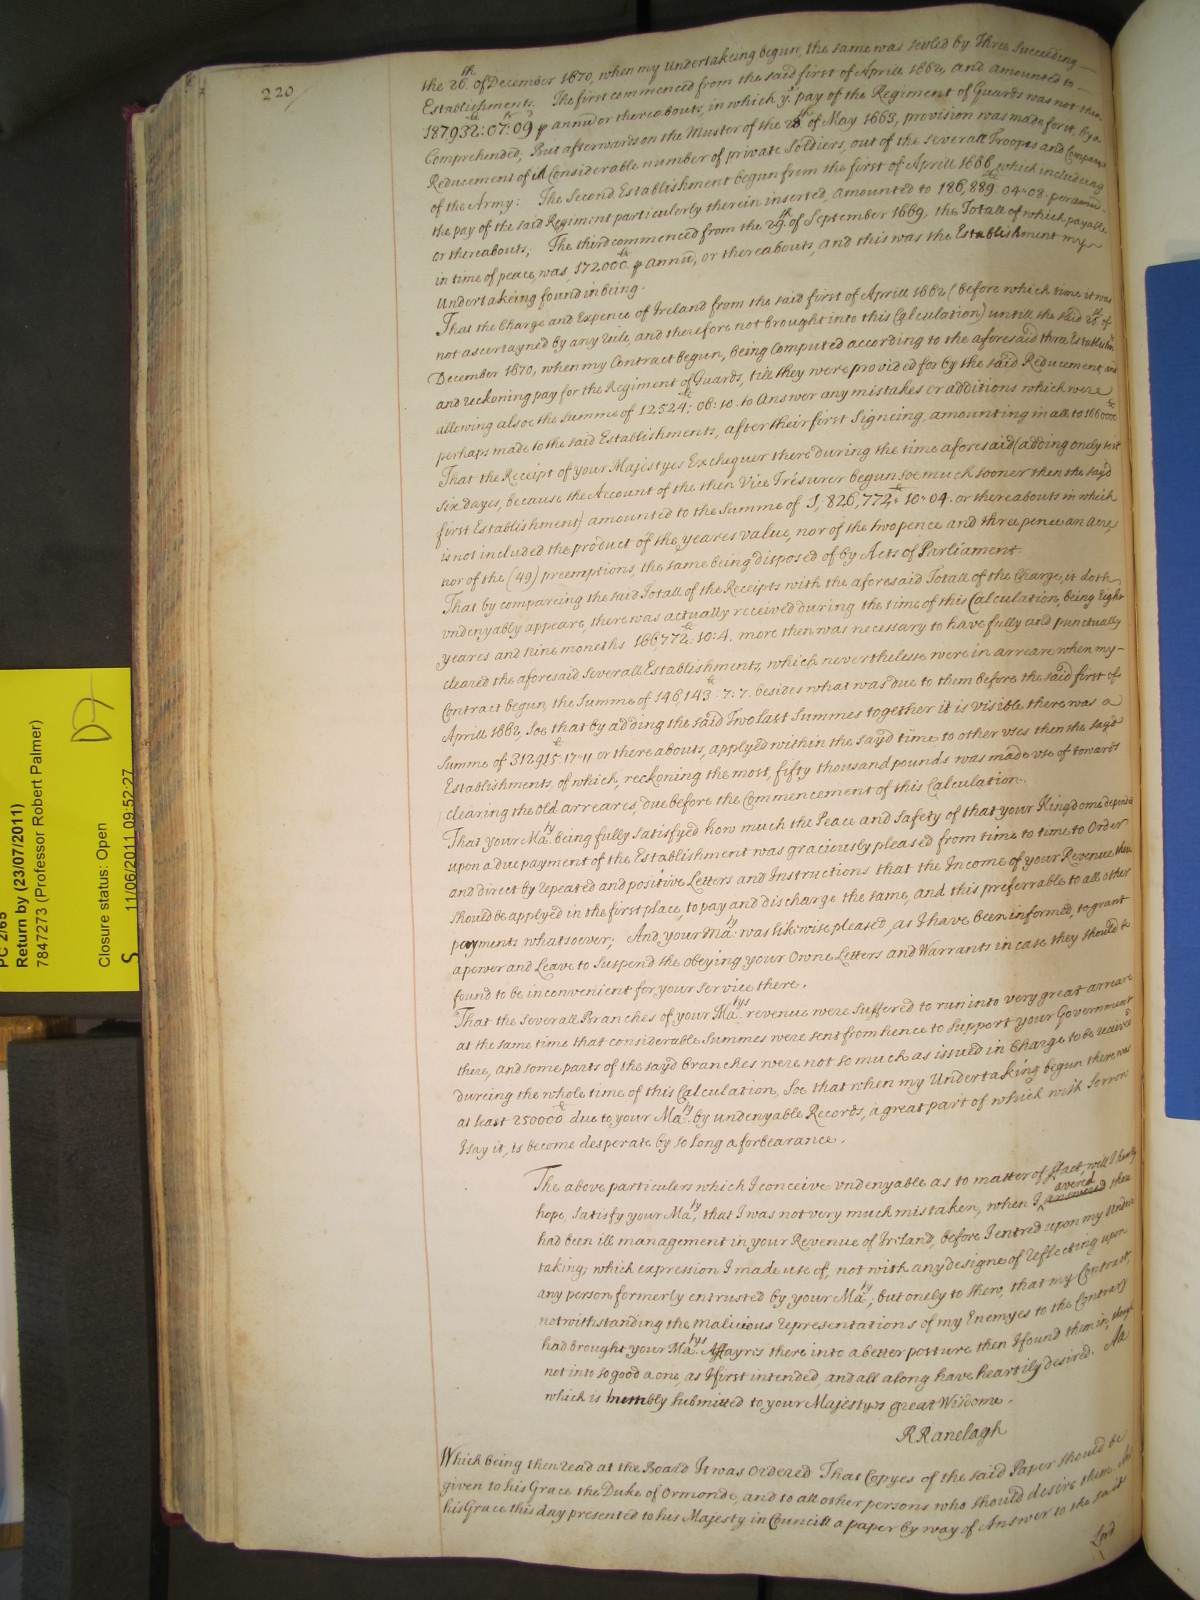 220
the 26th. of December 1670, when my Undertakeing begun, the same was setled by Three Succeeding
Establishments. The first commenced from the said first of Aprill 1662, and amounted to
187932: 07: 09 ꝑ annū or thereabouts, in which ye. pay of the Regiment of Guards was not then
Comprehended; But afterwards on the Muster of the 28th of May 1663, provision was made for it, by a
Reducement of a Considerable number of private Soldiers, out of the severall Troopes and Companyes
of the Army: The Second Establishment begun from the first of Aprill 1666, which includeing
the pay of the said Regiment particulerly therein inserted, amounted to 186,889: 04: 08. per annū
or thereabouts; The third commenced from the 29th. of September 1669, the Totall of which payable
in time of peace, was, 172000li. ꝑ annū, or thereabouts, and this was the Establishment my
Undertakeing found in being.
That the Charge and Expence of Ireland from the said first of Aprill 1662 (before which time it was
not ascertayned by any rule, and therefore not brought into this Calculation) untill the said 26th. of
December 1670, when my Contract begun, being Computed according to the aforesaid three Establishmts
and reckoning pay for the Regiment of Guards, till they were provided for by the said Reducement, and
allowing alsoe the Summe of 12524li: 06: 10. to Answer any mistakes or additions which were
perhaps made to the said Establishments, after their first Signeing, amounting in all to 1660000li
That the Receipt of your Majestyes Exchequer there during the time aforesaid (adding onely
six dayes, because the Account of the then Vice Trésurer begun soe much sooner then the sayd
first Establishment) amounted to the Summe of 1,826,772li: 10: 04. or thereabouts in which
is not included the product of the yeares value, nor of the two pence and three pence an Acre,
nor of the (49) preemptions, the same being disposed of by Acts of Parliament
That by compareing the said Totall of the Receipts with the aforesaid Totall of the Charge, it doth
undenyably appeare, there was actually received during the time of this Calculation, being Eight
yeares and nine moneths 166,772li: 10: 4. more then was necessary to have fully and punctually
cleared the aforesaid severall Establishments, which nevertheless were in arreare when my
Contract begun, the Summe of 146,143li: 7: 7. besides what was due to them before the said first of
Aprill 1662, Soe that by adding the said Two last Summes together it is visible there was a
Summe of 312915li: 17: 11 or thereabouts, applyed within the sayd time to other uses then the sayd
Establishments, of which, reckoning the most, fifty thousand pounds was made use of towards
clearing the Old arreares, due before the Commencement of this Calculation.
That your Maty. being fully satisfyed how much the Peace and Safety of that your Kingdome depended
upon a due payment of the Establishment was graciously pleased from time to time to Order
and direct by repeated and positive Letters and Instructions that the Income of your Revenue there
should be applyed in the first place, to pay and discharge the same, and this preferrable to all other
payments whatsoever; And your Maty. was likewise pleased, as I have been informed, to grant
a power and Leave to Suspend the obeying your Owne Letters and Warrants in case they should be
found to be inconvenient for your Service there.
That the severall Branches of your Matys revenue were suffered to run into very great arreare
at the same time that considerable Summes were sent from hence to support your Government
there, and some parts of the sayd branches were not so much as issued in Charge to be received
dureing the whole time of this Calculation, Soe that when my Undertaking begun there was
at least 250000li due to your Maty. by undenyable Records, a great part of which with sorrow
I say it, is become desperate by so long a forbearance.
The above particulers which I conceive undenyable as to matter of ffact, will I humbly
hope, satisfy your Maty, that I was not very much mistaken, when I answered avered there
had been ill management in your Revenue of Ireland, before I entred upon my Under
taking; which expression I made use of, not with any designe of reflecting upon
any person formerly entrusted by your Maty; but onely to shew, that my Contract,
notwithstanding the malicious representations of my Enemyes to the Contrary
had brought your Matys Affayres there into a better posture then I found them in, though
not into so good a one, as I first intended, and all along have heartily desired. All
which is humbly submitted to your Majestyes great Wisdome.
RRanelagh
Which being then read at the Board It was Ordered That Copyes of the said Paper should be
given to his Grace the Duke of Ormonde, and to all other persons who should desire them. And
his Grace this day presented to his Majesty in Councill a paper by way of Answer to the said
Lord
PC 2/65
Return by (23/07/2011)
7847273 (Professor Robert Palmer)
Closure status: Open
S 11/06/2011 09:52:27
D7